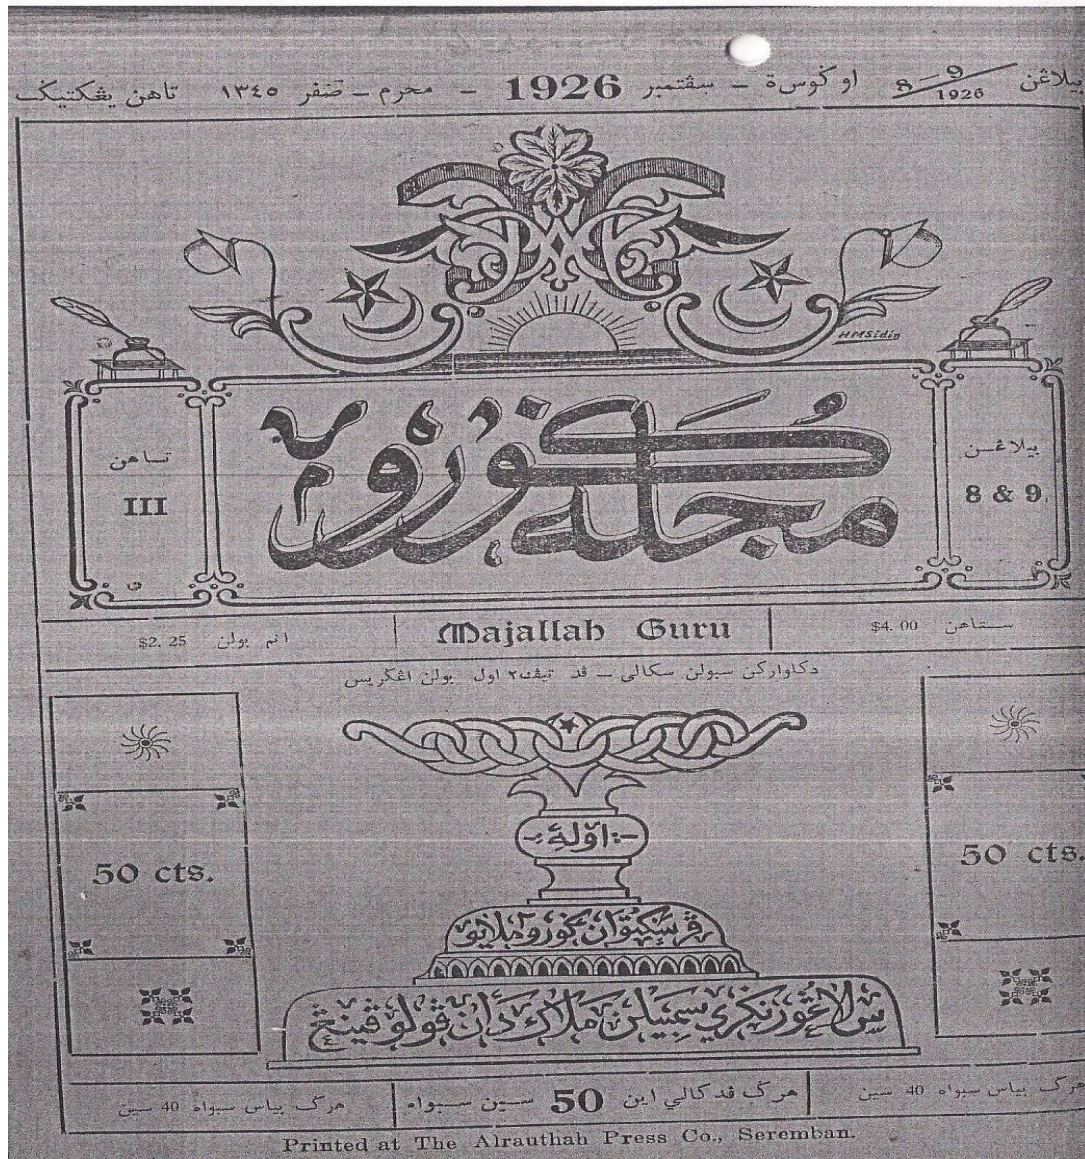 بيلاڠن 8-9/1926 اوݢوس‌ة – سڤتمبر 1926 – محرم – صفر ١٣٤٥ تاهن يڠكتيݢ
HMSidin
مجله ݢورو
تاهن
III
بيلاڠن
8 & 9
ستاهن $4.00
Majallah Guru
انم بولن $2.25
دكلواركن سبولن سكالي – ڤد تيڤ٢ اول بولن اڠݢريس
50 cts.
50 cts.
-:اوله:-
ڤرسكتوان ݢورو ملايو
سلاڠور نݢري سمبيلن ملاك دان ڤولو ڤينڠ
هرݢ بياس سبواه 40 سين
هرݢ ڤد كالي اين 50 سين سبواه
هرݢ بياس سبواه 40 سين
Printed at The Alrauthah Press Co., Seremban.